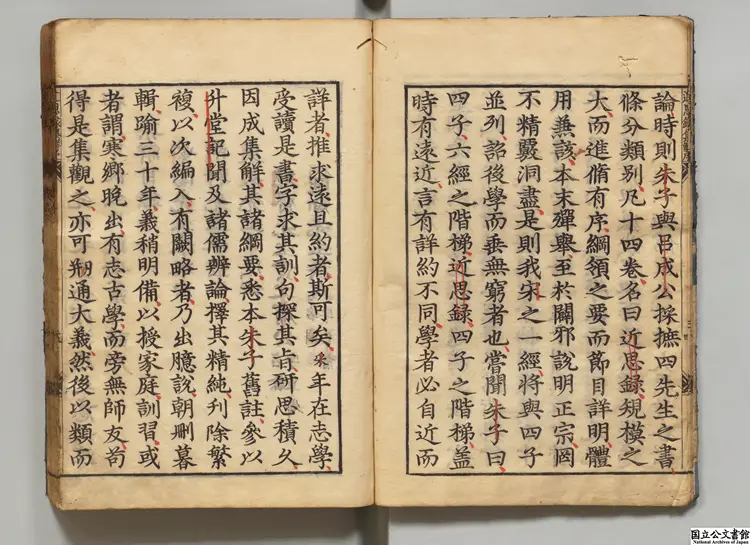 論時則朱子與呂成公採摭四先生之書
條分類別凡十四卷名曰近思錄規模之
大而進脩有序綱領之要而節目詳明體
用兼該本末殫舉至於闢邪說明正宗罔
不精覈洞盡是則我宋之一經將與四子
並列詔後學而垂無窮者也嘗聞朱子曰
四子六經之階梯近思錄四子之階梯蓋
時有遠近言有詳約不同學者必自近而
詳者推求遠且約者斯可矣采年在志學
受讀是書字求其訓句探其旨研思積久
因成集解其諸綱要悉本朱子舊註參以
升堂記聞及諸儒辨論擇其精純刊除繁
複以次編入有闕略者乃出臆說朝刪暮
輯踰三十年義稍明備以授家庭訓習或
者謂寒鄉晚出有志古學而旁無師友苟
得是集觀之亦可刱通大義然後以類而
国立公文書館
National Archives of Japan